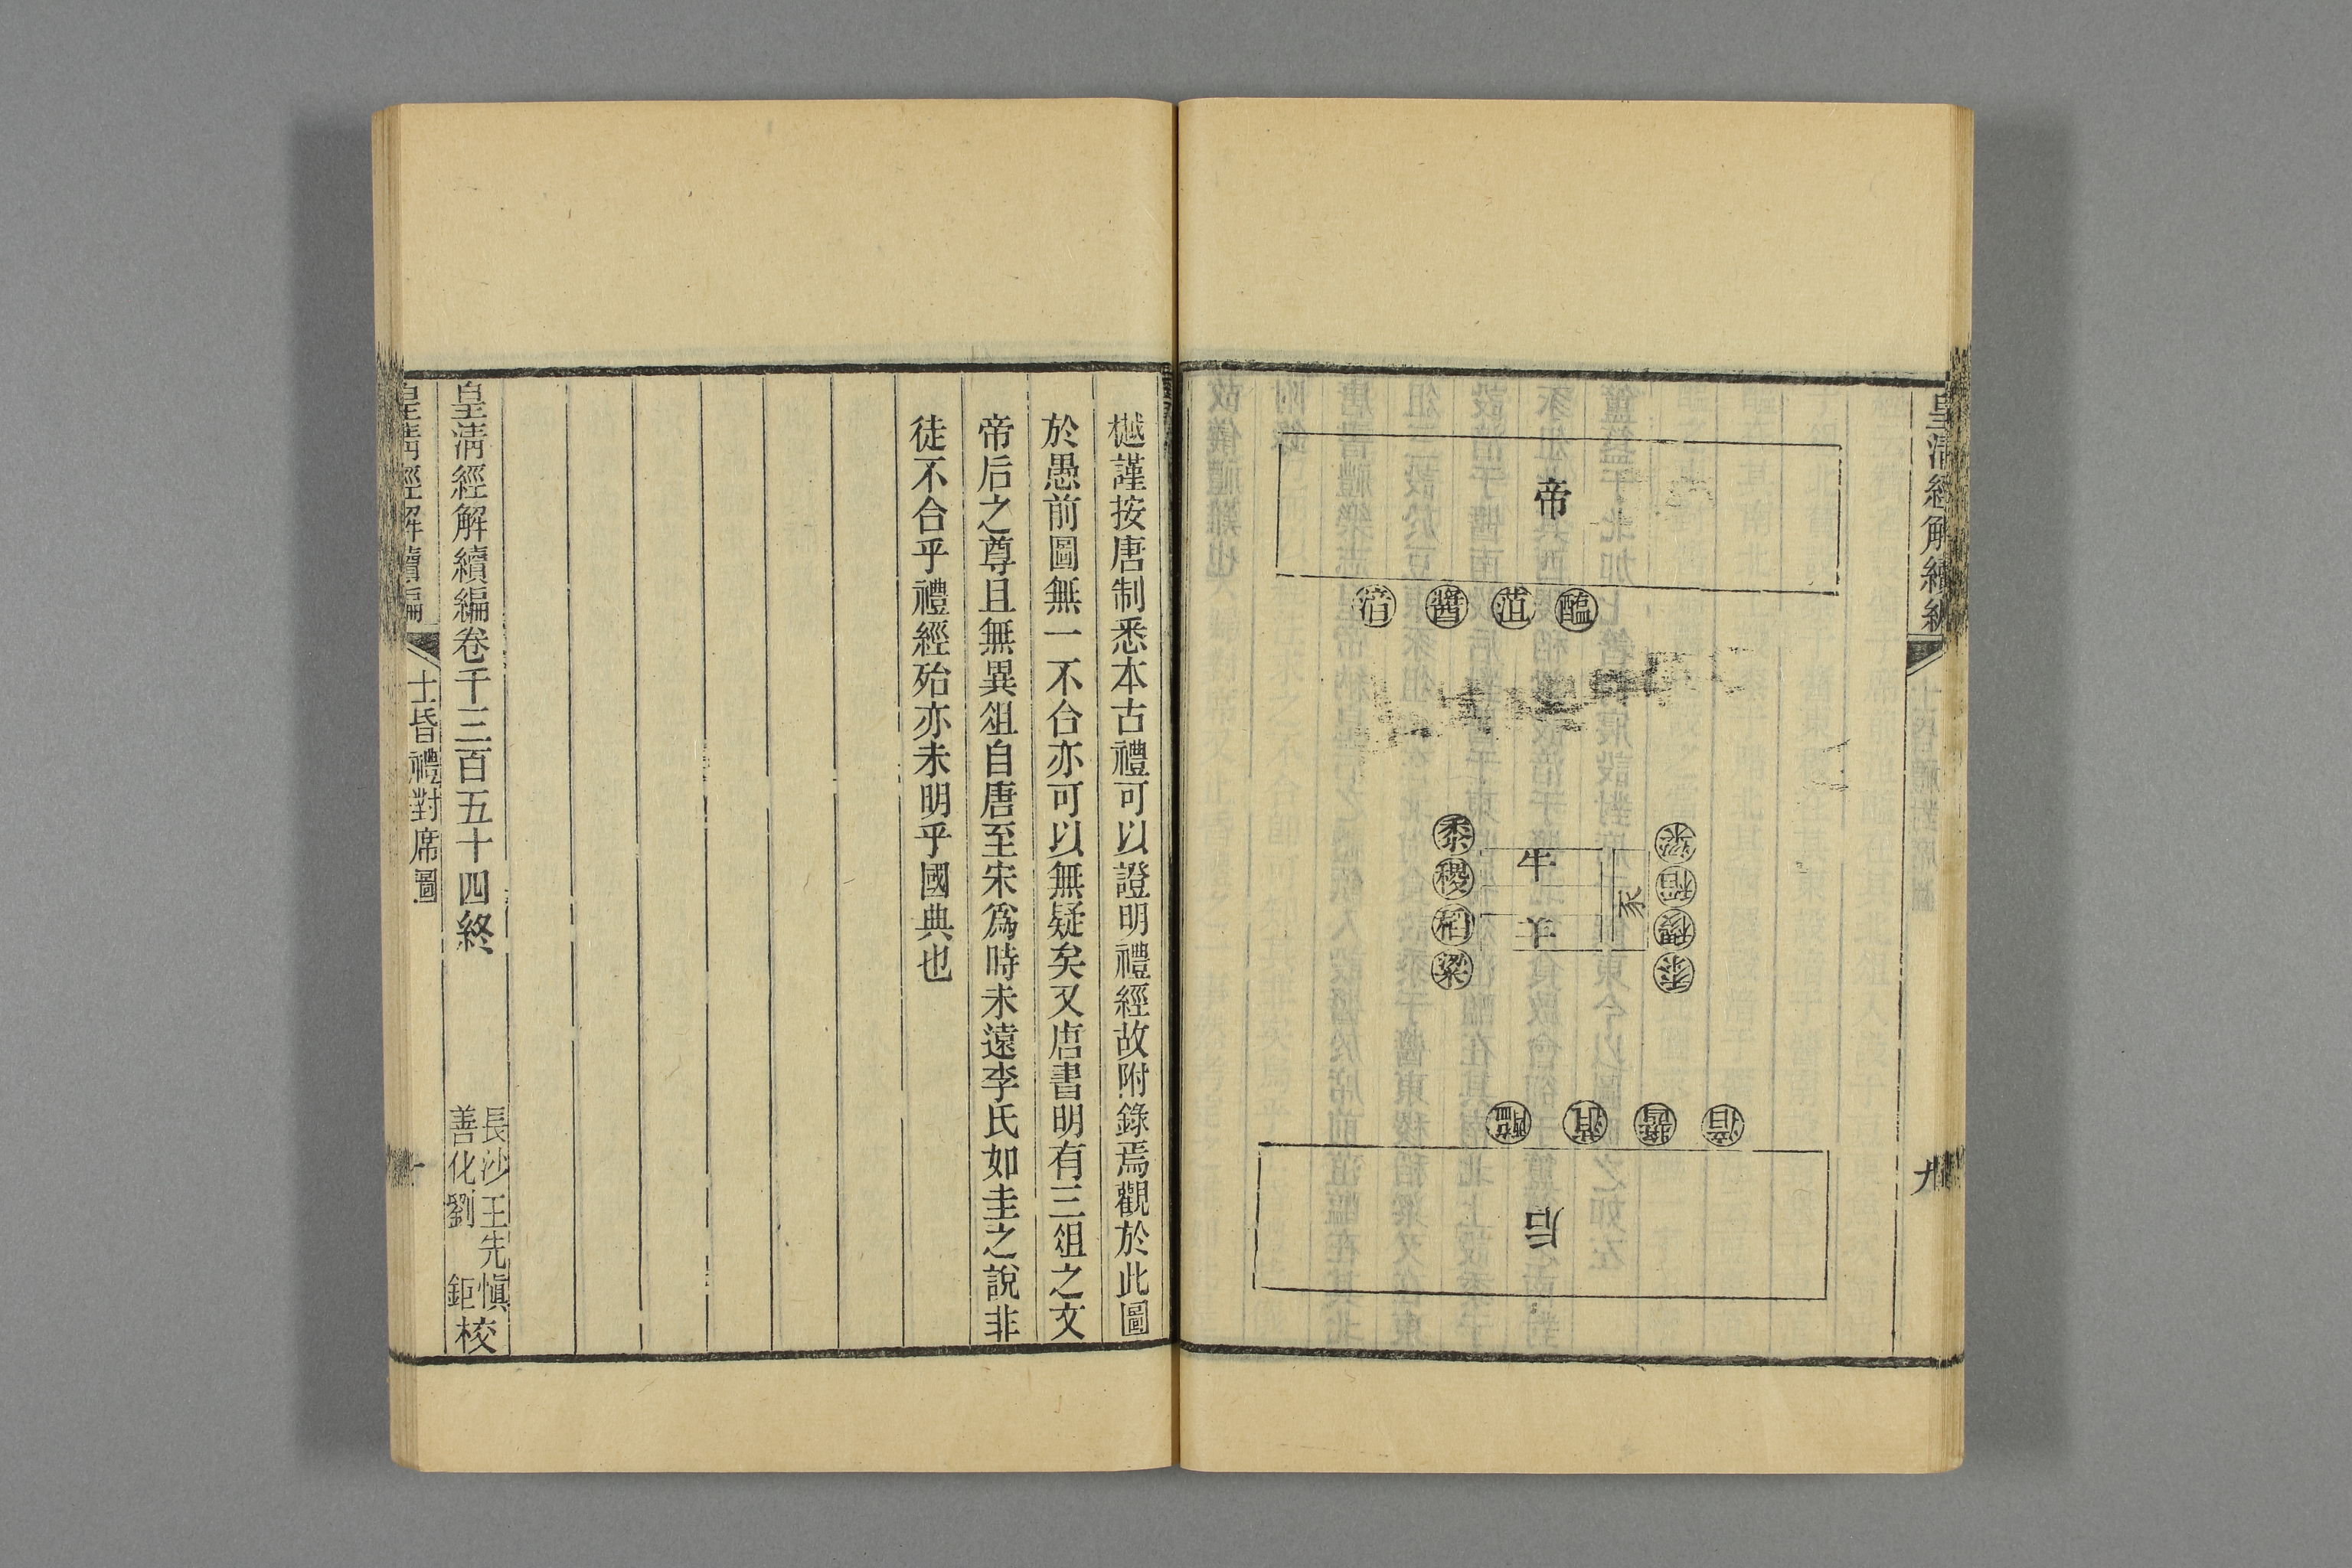 皇清經解續編
九
帝
湆
醬
菹
醢
黍
稷
稻
粱
牛
羊
豕
粱
稻
稷
黍
醢
菹
醬
湆
后
樾謹按唐制悉本古禮可以證明禮經故附錄焉觀於此圖
於愚前圖無一不合亦可以無疑矣又唐書明有三俎之文
帝后之尊且無異俎自唐至宋爲時未遠李氏如圭之說非
徒不合乎禮經殆亦未明乎國典也
皇淸經解續編卷千三百五十四終
長沙王先愼
善化劉鉅校
皇淸經解續編
士昏禮對席圖